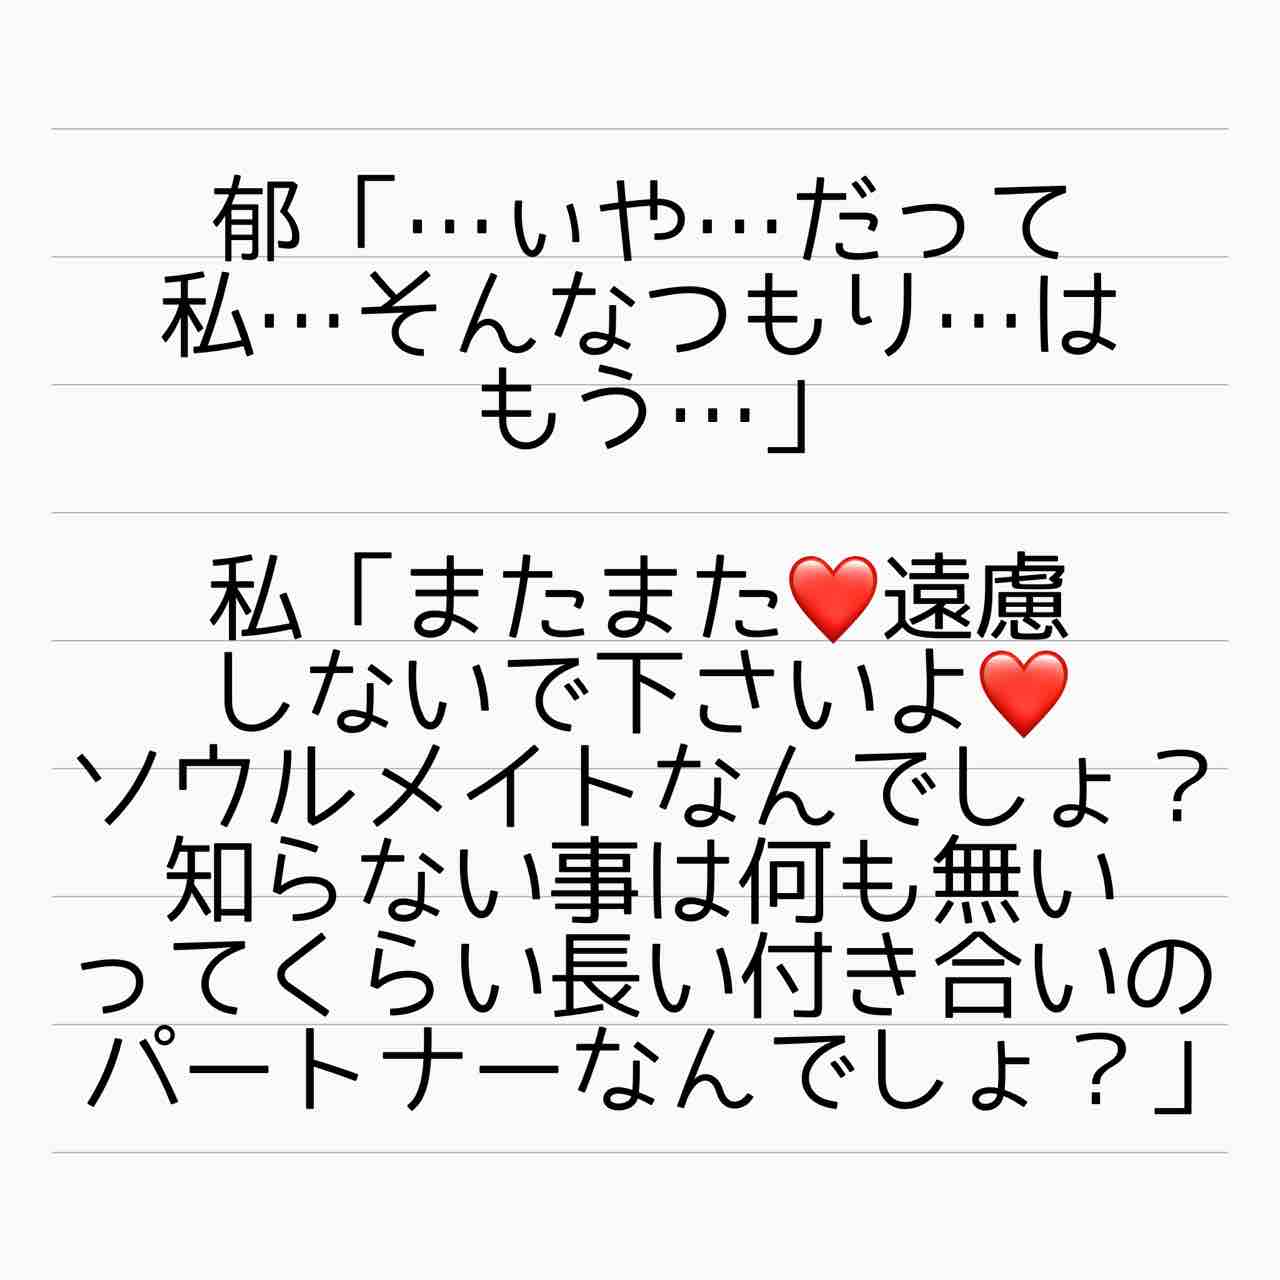 郁「…ぃや…だって
私…そんなつもり…は
もう…」
私「またまた❤️遠慮
しないで下さいよ❤️
ソウルメイトなんでしょ？
知らない事は何も無い
ってくらい長い付き合いの
パートナーなんでしょ？」